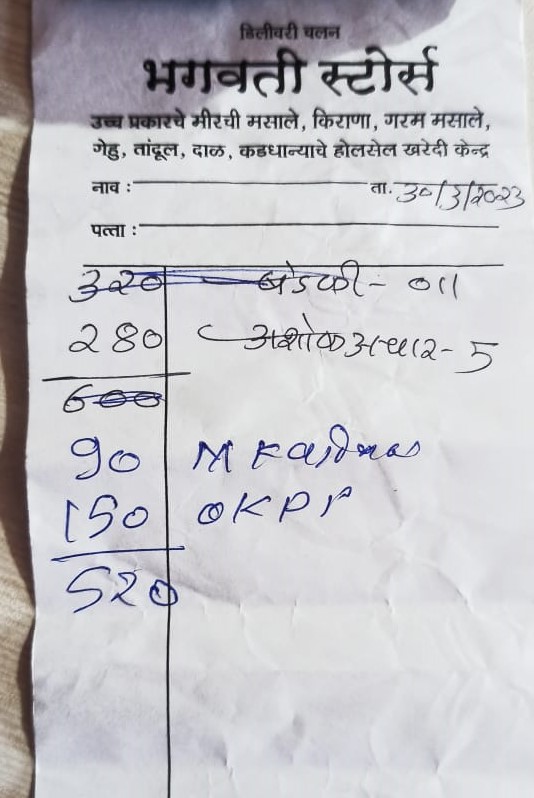 डिलीवरी चलन
भगवती स्टोर्स
उच्च प्रकारचे मीरची मसाले, किराणा, गरम मसाले,
गेहु, तांदूल, दाळ, कडधान्याचे होलसेल खरेदी केन्द्र
नाव : ता. 30/3/2023
पत्ता :
320 बेडकी - ०॥
280 अशोक अचार - 5
600
90 M
150 OKPP
520